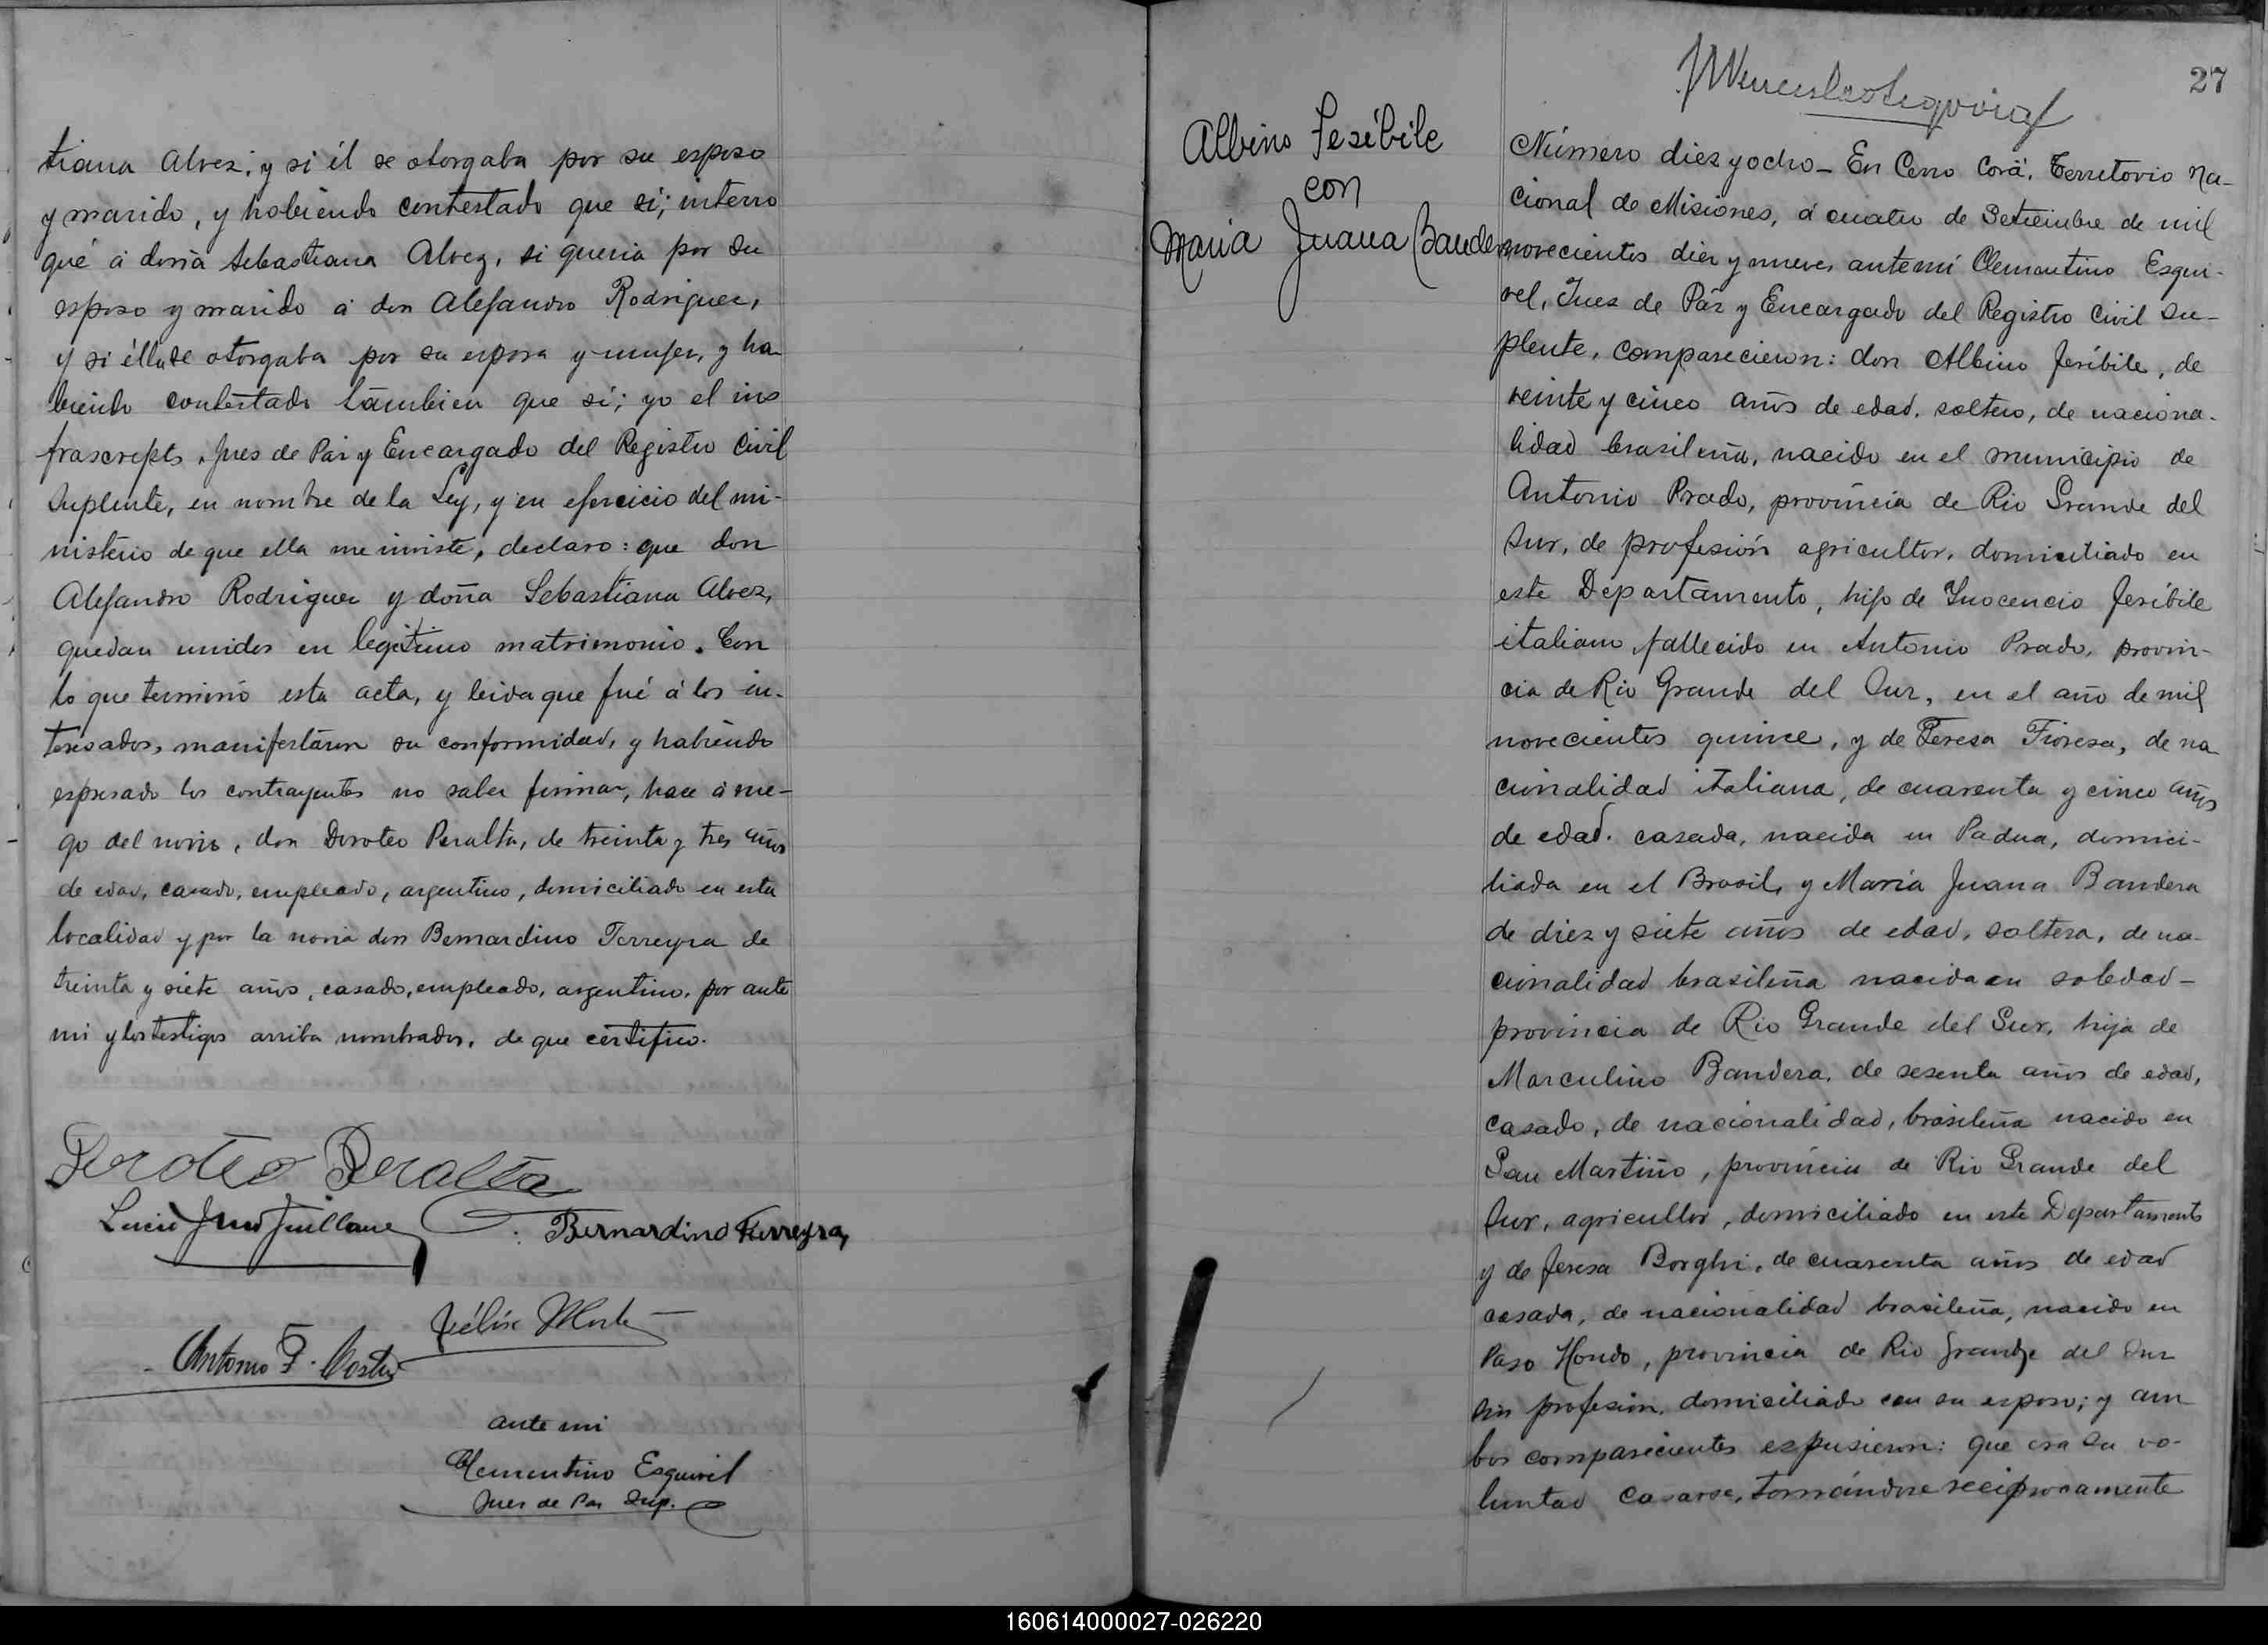 tiana Alvez; y si él se otorgaba por su esposo
y marido, y habiendo contestado que sí; interro
gué á doña Sebastiana Alvez, si queria por su
esposo y marido á don Alejandro Rodriguez,
y si élla se otorgaba por su esposa y mujer, y ha
biendo contestado tambien que sí; yo el ins
frascripto, Jues de Paz y Encargado del Registro Civil
Suplente, en nombre de la Ley, y en ejercicio del mi-
nisterio de que ella me inviste, declaro: que don
Alejandro Rodriguez y doña Sebastiana Alvez,
quedan unidos en legitimo matrimonio. Con
lo que terminó esta acta, y leida que fué á los in-
teresados, manifestaron su conformidad, y habiendo
espresado los contrayentes no saber firmar, hace á rue-
go del novio, don Doroteo Peralta, de treinta y tres años
de edad, casado, empleado, argentino, domiciliado en esta
localidad y por la novia don Bernardino Ferreyra de
treinta y siete años, casado, empleado, argentino, por ante
mi y los testigos arriba nombrados, de que certifico.
Doroteo Peralta
Lucio
Bernardino Ferreyra
Félix
Antonio F.
ante mi
Clementino Esquivel
Jues de Paz Sup.
27
Albino Fesibile
con
Maria Juana Bandera
Número diez y ocho - En Cerro Corá, Territorio Na-
cional de Misiones, á cuatro de Setiembre de mil
novecientos diez y nueve, ante mi Clementino Esqui-
vel, Jues de Páz y Encargado del Registro Civil Su-
plente, comparecieron: don Albino Fesibile, de
veinte y cinco años de edad, soltero, de naciona-
lidad brasileña, nacido en el municipio de
Antonio Prado, provincia de Rio Grande del
Sur, de profesión agricultor, domiciliado en
este Departamento, hijo de Inocencio Fesibile
italiano, fallecido en Antonio Prado, provin-
cia de Rio Grande del Sur, en el año de mil
novecientos quince, y de Teresa Fioresa, de na
cionalidad italiana, de cuarenta y cinco años
de edad. casada, nacida en Padua, domici-
liada en el Brasil, y María Juana Bandera
de diez y siete años de edad, soltera, de na-
cionalidad brasileña nacida en soledad-
provincia de Rio Grande del Sur, hija de
Marculino Bandera, de sesenta años de edad,
casado, de nacionalidad, brasileña nacido en
San Martiño, provincia de Rio Grande del
Sur, agricultor, domiciliado en este Departamento
y de Teresa Borghi, de cuarenta años de edad
casada, de nacionalidad brasileña, nacido en
Paso Hondo, provincia de Rio Grande del Sur
sin profesion, domiciliado con su esposo; y am
bos comparecientes espusieron: que era su vo-
luntad casarse, tomándose reciprocamente
160614000027-026220